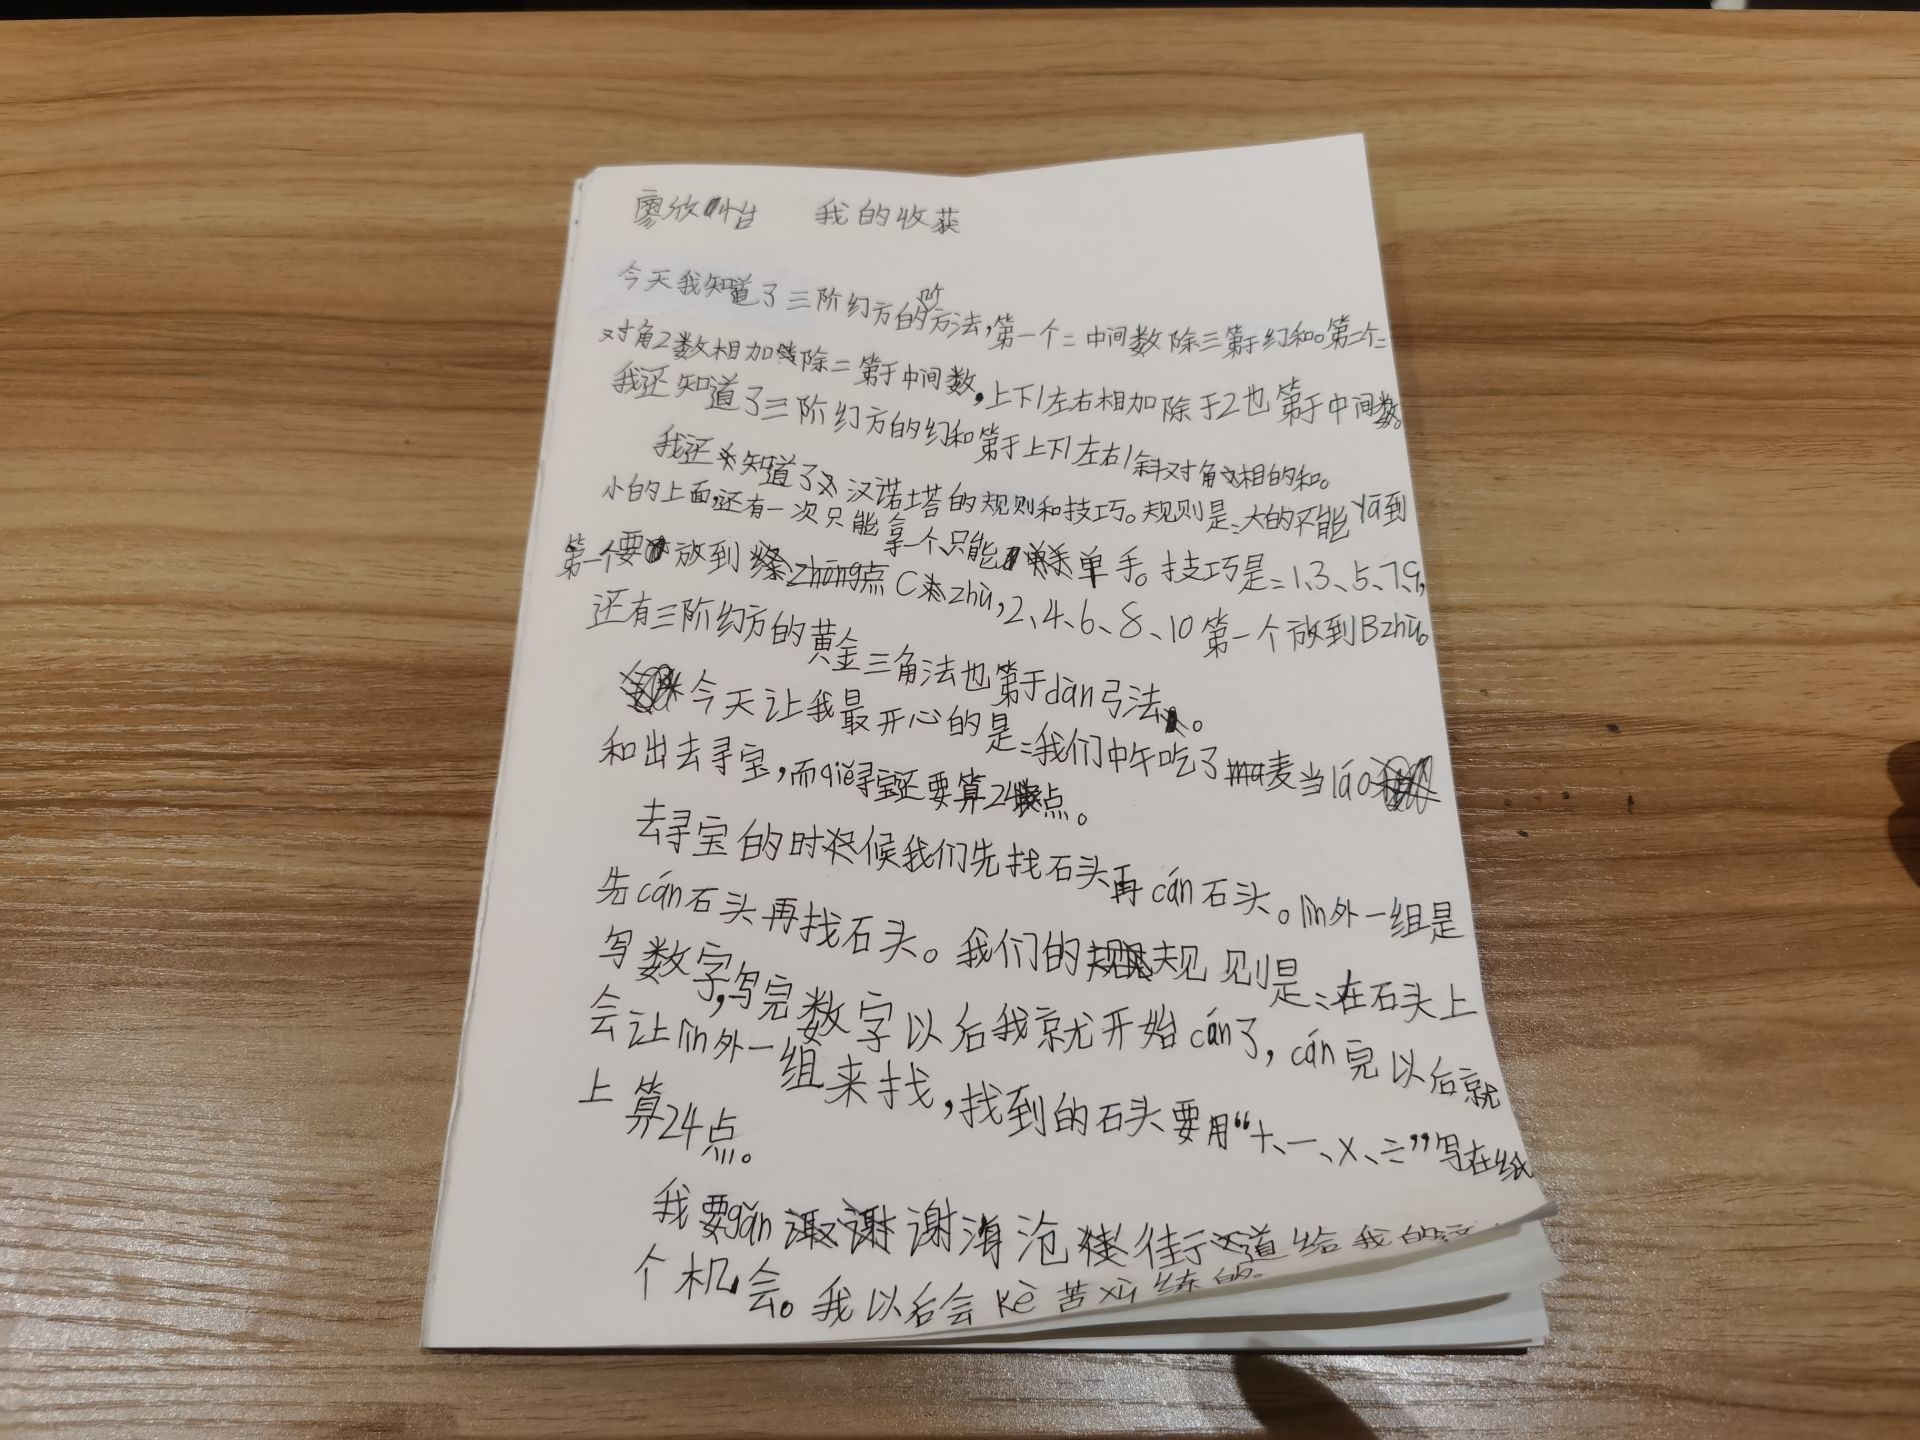 廖欣怡 我的收获
今天我知道了三阶幻方的阶方法,第一个:中间数除三第于幻和。第二个:
对角2数相加除二第于中间数,上下/左右相加除于2也第于中间数。
我还知道了三阶幻方的幻和第于上下/左右/斜对角相的和。
我还知道了汉诺塔的规则和技巧。规则是:大的不能yā到
小的上面,还有一次只能拿一个,只能单手。技巧是:1、3、5、7、9,
第一个要放到zhōng点C zhù,2、4、6、8、10第一个放到B zhù。
还有三阶幻方的黄金三角法也第于dàn弓法。
今天让我最开心的是:我们中午吃了麦当láo
和出去寻宝,而qiě寻宝还要算24点。
去寻宝的时候我们先找石头再cán石头。lìn外一组是
先cán石头再找石头。我们的规则是:在石头上
写数字,写完数字以后我就开始cán了,cán完以后就
会让lìn外一组来找,找到的石头要用“+、-、×、÷”写在纸
上算24点。
我要gǎn谢海沧街道给我的这
个机会。我以后会kè苦xùn练的。